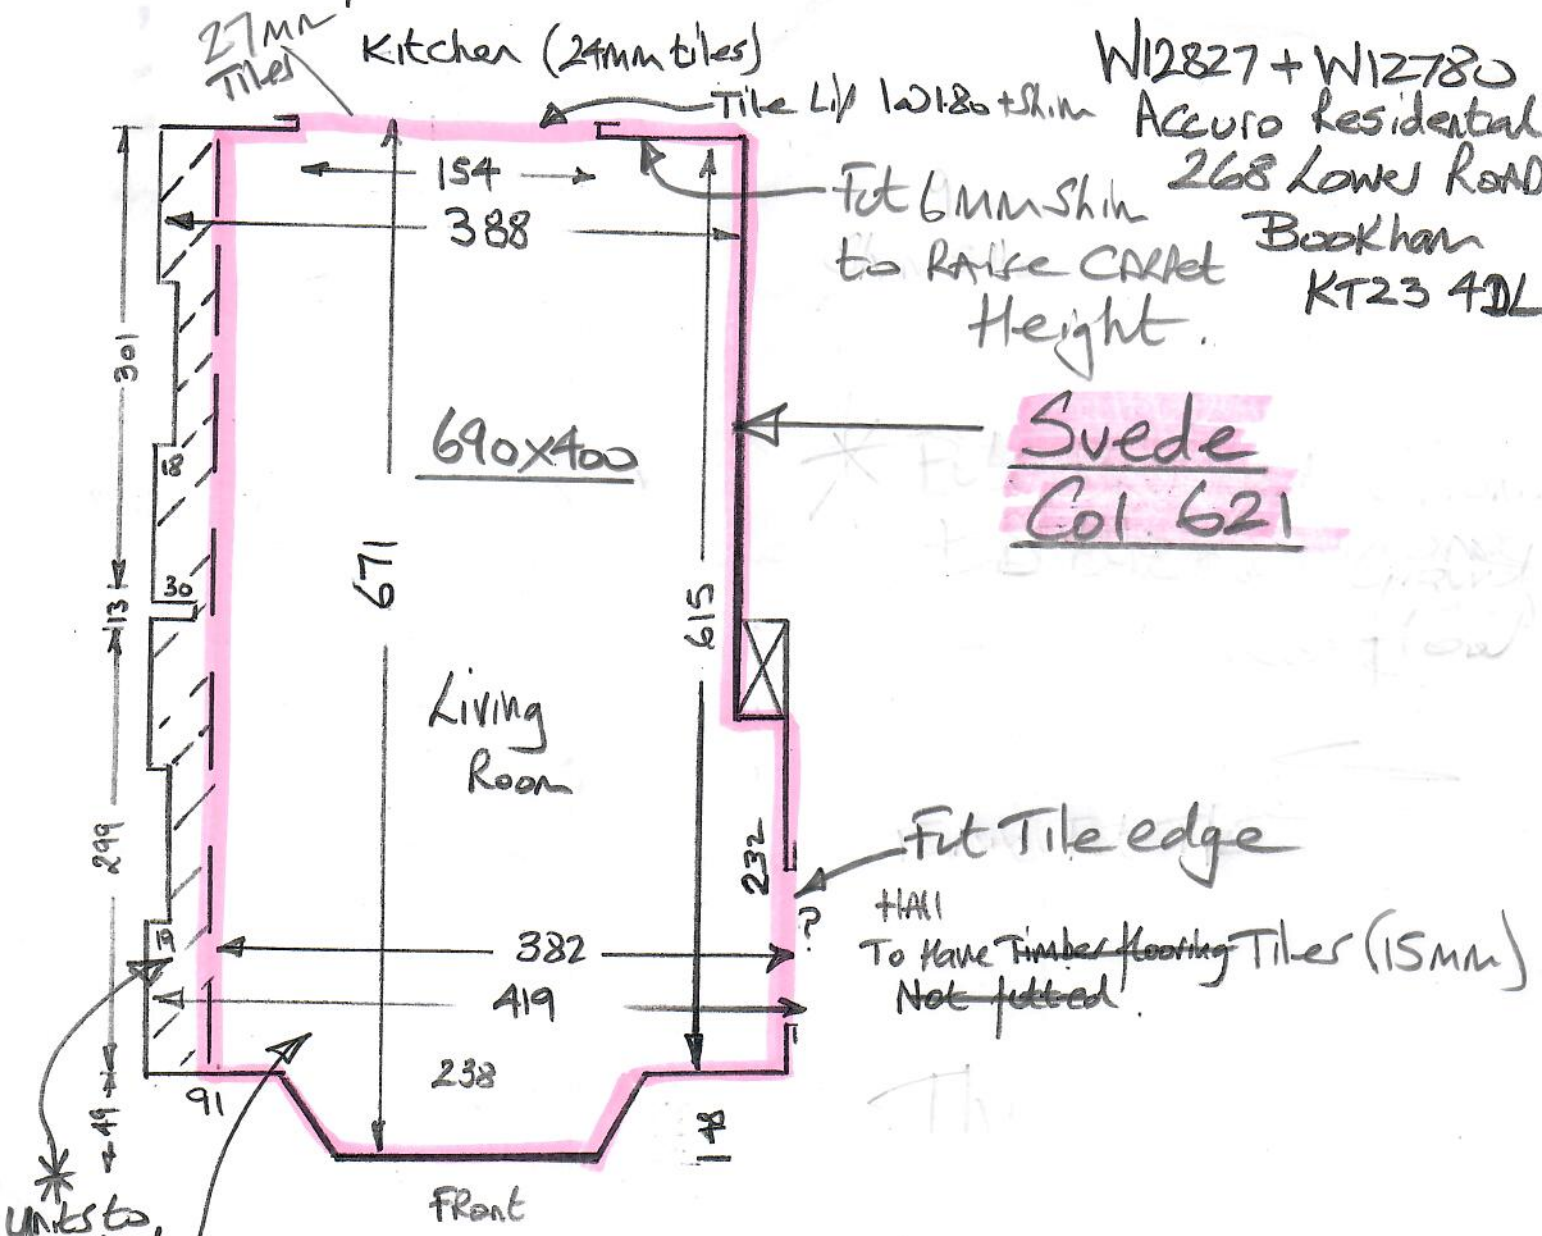 27mm
Tiles
Kitchen (24mm tiles)
Tile Lip 1@1.80 + Shim
W12827 + W12780
Accuro Residential
268 Lower Road
Bookham
KT23 4DL
Fit 6mm Shim
to Raise Carpet
Height.
154
388
301
690x400
Suede
Col. 621
18
30
13
671
615
Living
Room
299
232
Fit Tile edge
Hall
To Have Timber flooring Tiles (15mm)
Not fitted.
?
19
382
419
238
91
49
148
Front
units to